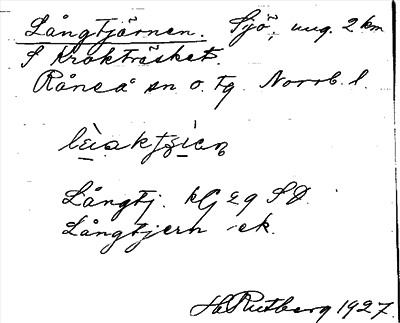 Långtjärnen. Sjö, ung. 2 km
S Kroktråsket.
Råneå sn o. tg. Norrb. l.
Långtj. kG 29 SD.
Långtjern -ek.
H Rutberg 1927.